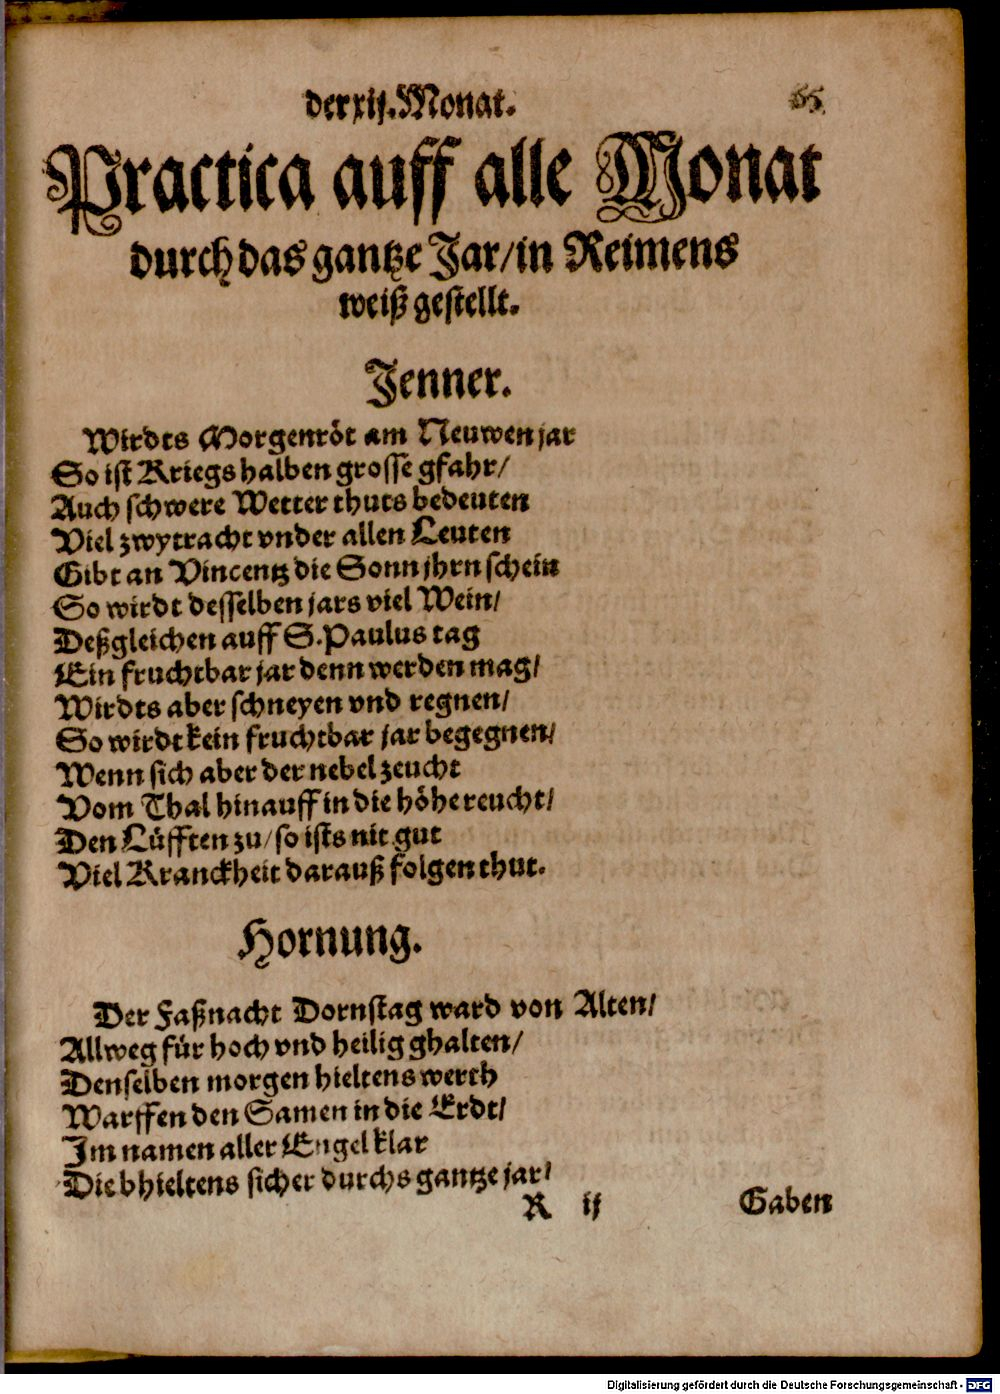 der xij. Monat.
65
Practica auff alle Monat
durch das gantze Jar/in Reimens
weiß gestellt.
Jenner.
Wirdts Morgenröt am Neuwen jar
So ist Kriegs halben grosse gfahr/
Auch schwere Wetter thuts bedeuten
Viel zwytracht vnder allen Leuten
Gibt an Vincentz die Sonn jhrn schein
So wirdt desselben jars viel Wein/
Deßgleichen auff S. Paulus tag
Ein fruchtbar jar denn werden mag/
Wirdts aber schneyen vnd regnen/
So wirdt kein fruchtbar jar begegnen/
Wenn sich aber der nebel zeucht
Vom Thal hinauff in die höhe reucht/
Den Lüfften zu/so ists nit gut
Viel Kranckheit darauß folgen thut.
Hornung.
Der Faßnacht Dornstag ward von Alten/
Allweg für hoch vnd heilig ghalten/
Denselben morgen hieltens werth
Warffen den Samen in die Erdt/
Im namen aller Engel klar
Die bhieltens sicher durchs gantze jar/
R ij Gaben
Digitalisierung gefördert durch die Deutsche Forschungsgemeinschaft - DFG